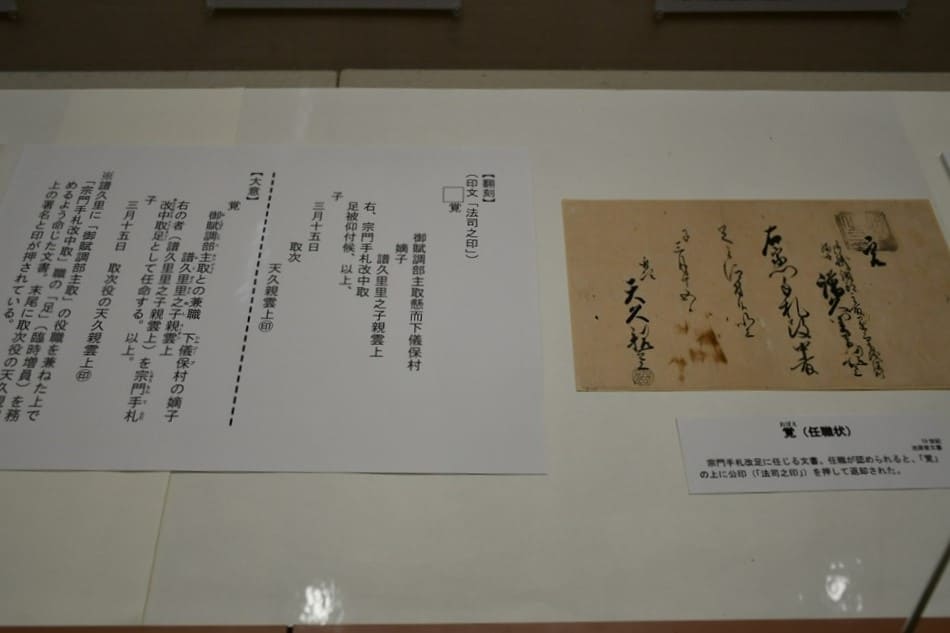 【翻刻】
(印文「法司之印」)
覚
御賦調部主取懸而下儀保村
嫡子
譜久里里之子親雲上
右、宗門手札改中取
足被仰付候、以上、
子
三月十五日
取次
天久親雲上㊞
【大意】
覚
御賦調部主取との兼職 下儀保村の嫡子
譜久里里之子親雲上
右の者(譜久里里之子親雲上)を宗門手札
改中取足として任命する。以上。
子
三月十五日 取次役の天久親雲上㊞
※譜久里に「御賦調部主取」の役職を兼ねた上で
「宗門手札改中取」職の「足」(臨時増員)を務
めるよう命じた文書。末尾に取次役の天久親雲
上の署名と印が押されている。
覚
右宗門手札改中取
三月十五日
天久親雲上
おぼえ
覚(任職状)
19世紀
宗門手札改足に任じる文書。任職が認められると、「覚」
の上に公印(「法司之印」)を押して返却された。